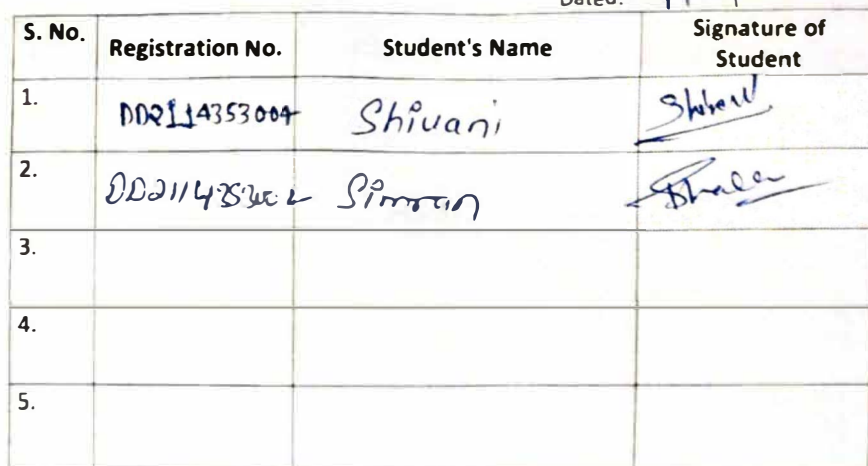 Dated:
S. No. Registration No. Student's Name Signature of Student
1. DD2114353004 Shivani
2. Simran
3.
4.
5.